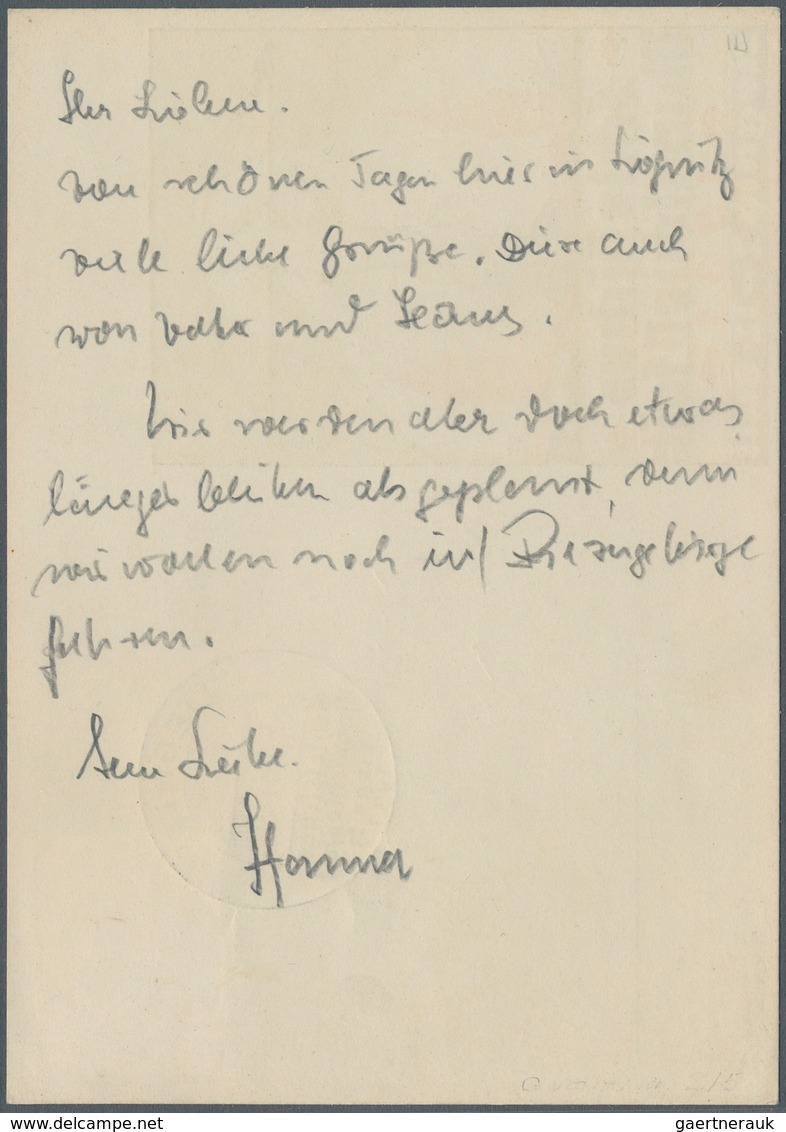 Ihr Lieben.
von schönen Tagen hier in Liegnitz
viele liebe Grüße. Diese auch
von Vater und
Wir werden aber doch etwas
länger bleiben als geplant, denn
wir wollen noch in's Riesengebirge
fahren.
Liebe.
Hanna
gaertnerauk